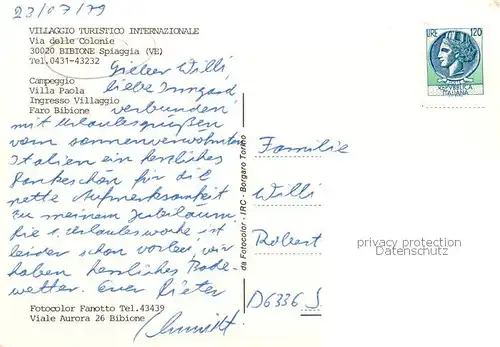 23/07/79
VILLAGGIO TURISTICO INTERNAZIONALE
Via delle Colonie
30020 BIBIONE Spiaggia (VE)
Tel.0431-43232
Campeggio
Villa Paola
Ingresso Villaggio
Faro Bibione
Lieber Willi,
liebe Irmgard
verbunden
mit Urlaubsgrüßen
vom sonnenverwöhnten
Italien ein herzliches
Dankeschön für die
nette Aufmerksamkeit
zu meinem Jubiläum.
Die 1. Urlaubswoche ist
leider schon vorbei, wir
haben herrliches Bade-
wetter. Euer Dieter
Schmidt
Fotocolor Fanotto Tel.43439
Viale Aurora 26 Bibione
da Fotocolor - IRC - Borgaro Torino
LIRE 120
REPVBBLICA
ITALIANA
Familie
Willi
Robert
D6336 S
privacy protection
VarComm